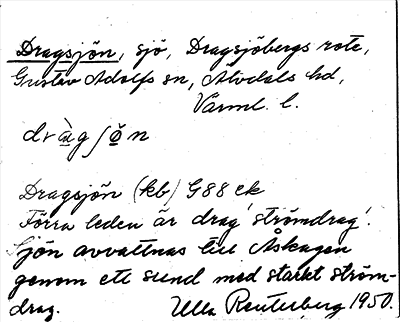 Dragsjön, sjö, Dragsjöbergs rote,
Gustav Adolfs sn, Älvdals hd,
Värml. l.
dràgʃǿn
Dragsjön (kb) G88 ek
Förra leden är drag 'strömdrag'.
Sjön avvattnas till Åskagen
genom ett sund med starkt ström-
drag. Ulla Reuterberg 1950.